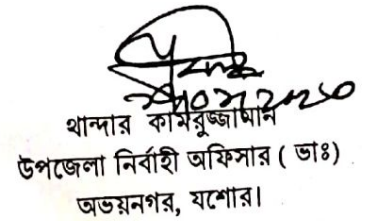 থান্দার কামরুজ্জামান
উপজেলা নির্বাহী অফিসার ( ভাঃ)
অভয়নগর, যশোর।